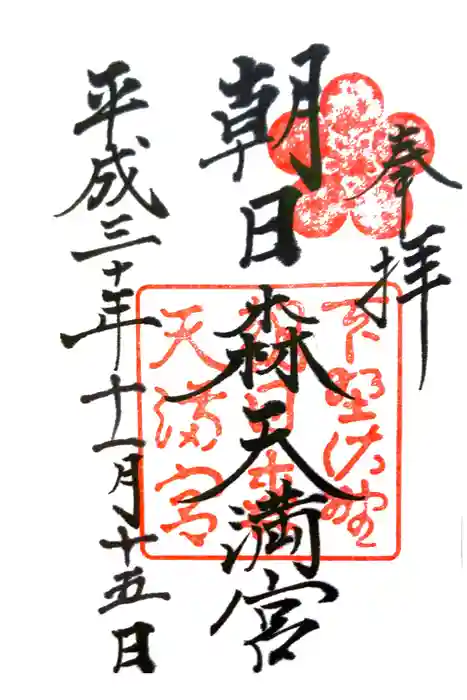 奉拝
朝日森天満宮
平成三十年十一月十五日
下野佐野
朝日森
天満宮